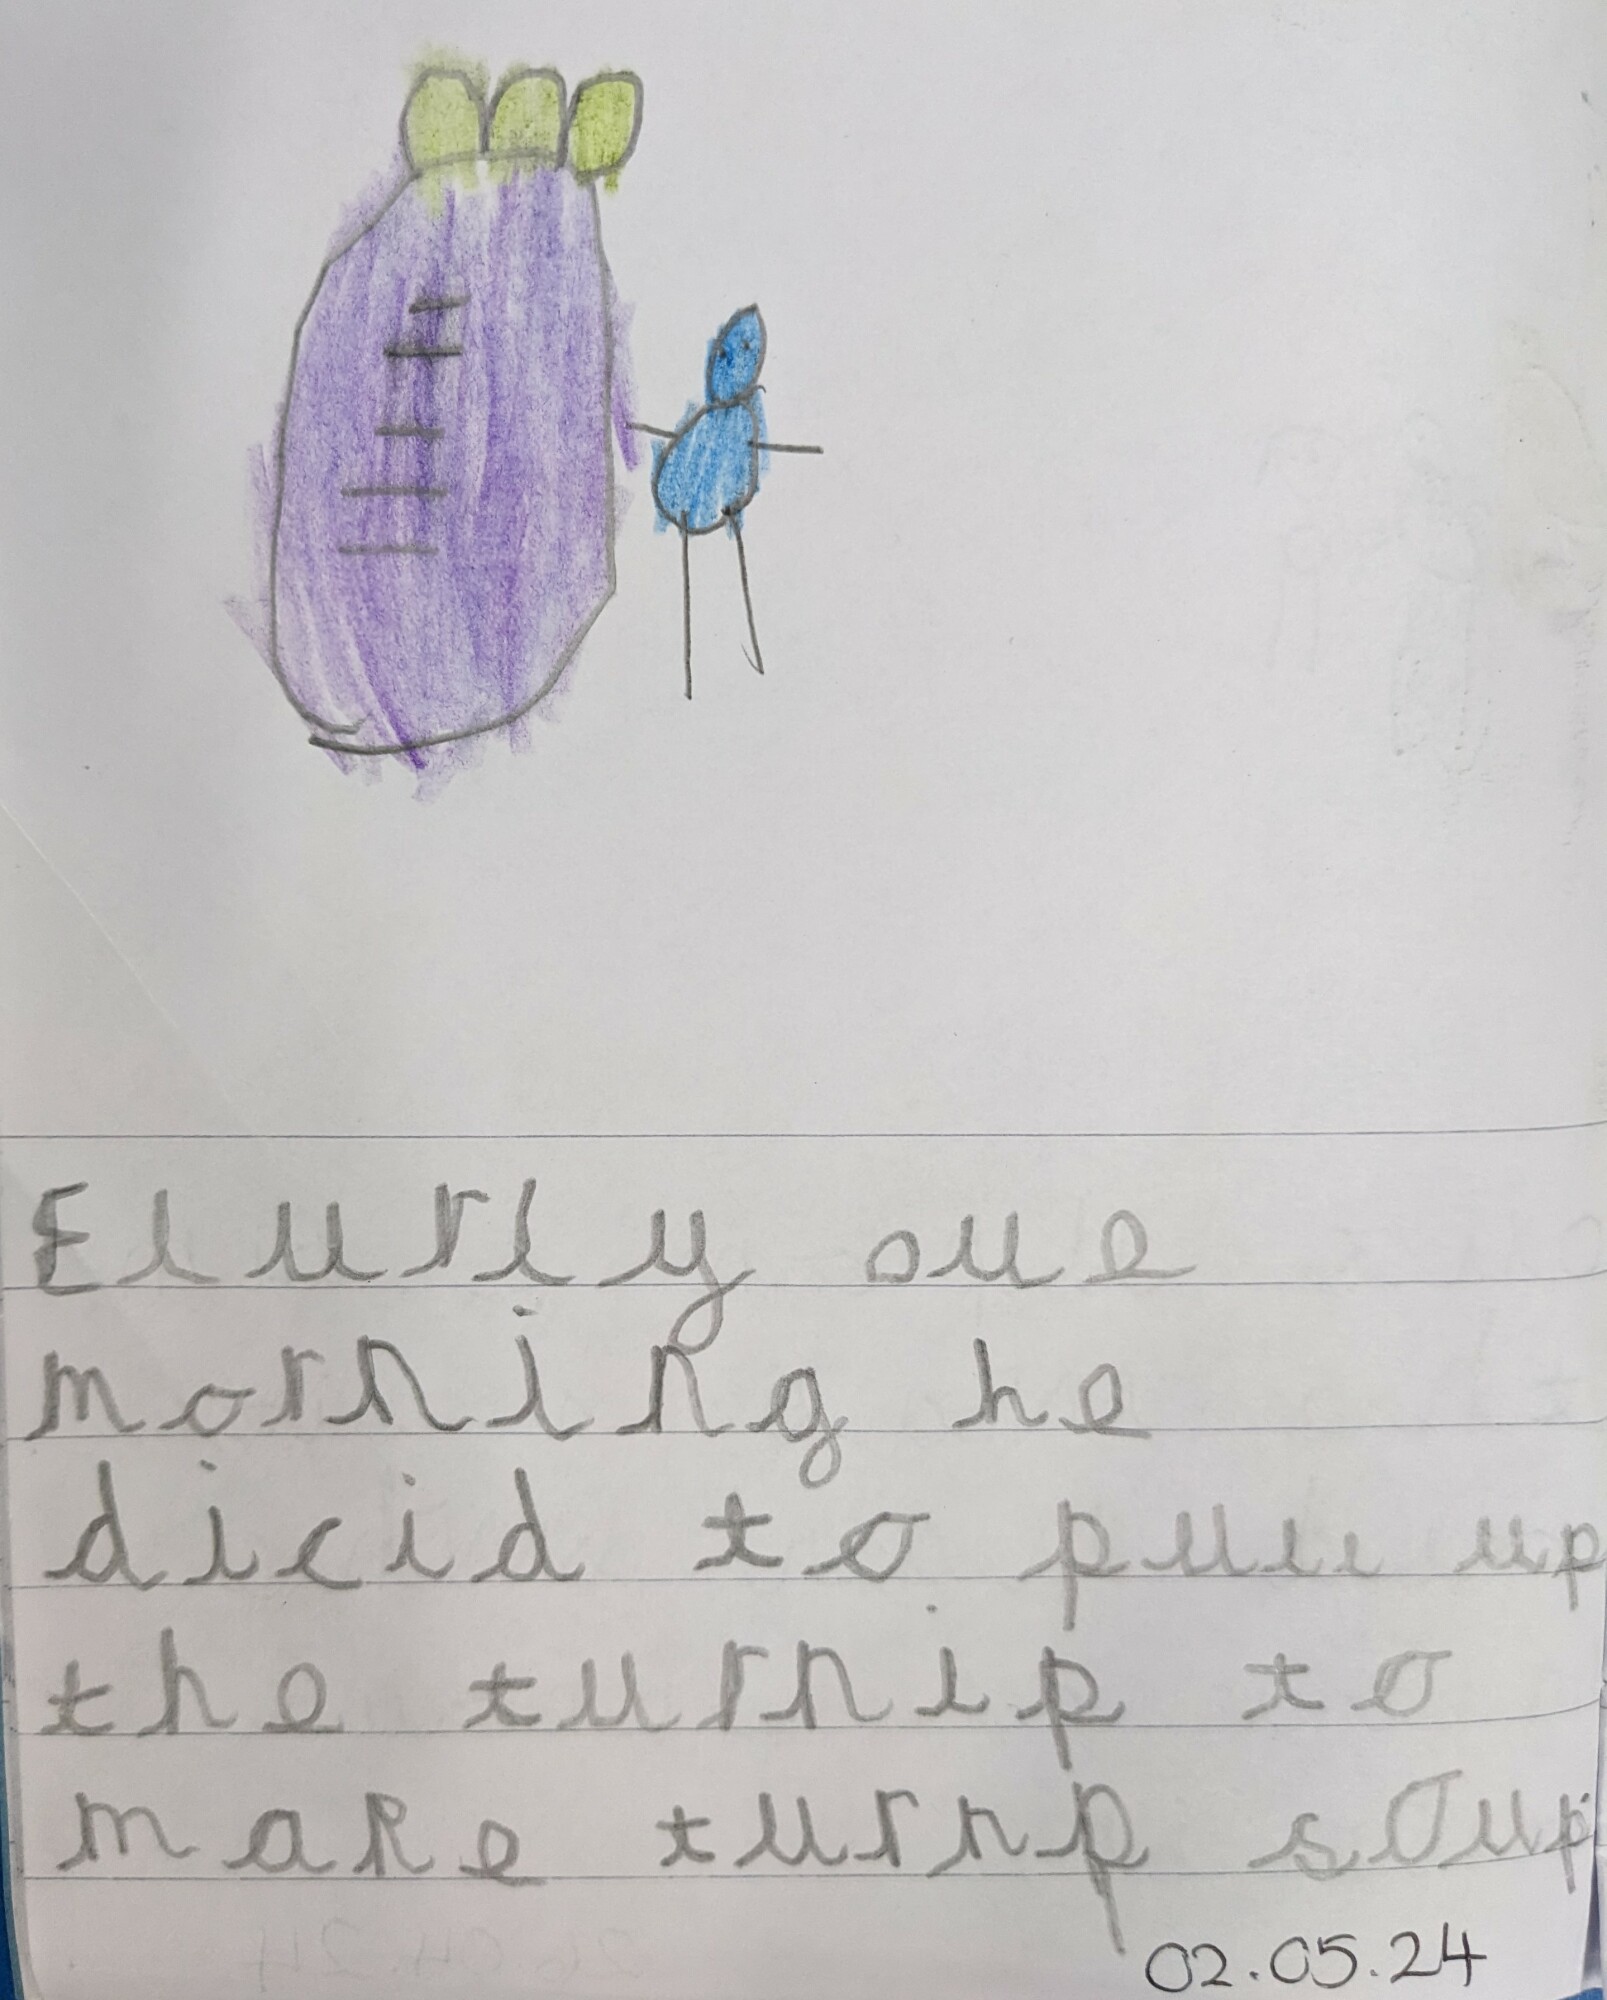 Elurly oue
morning he
dicid to pull up
the turnip to
make turnp soup
02.05.24